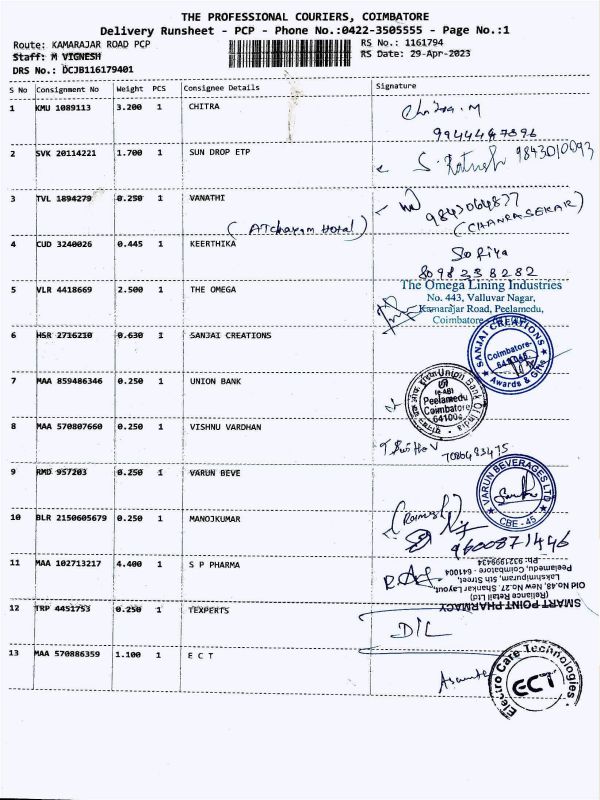 THE PROFESSIONAL COURIERS, COIMBATORE
Delivery Runsheet - PCP - Phone No.:0422-3505555 - Page No.:1
Route: KAMARAJAR ROAD PCP
RS No.: 1161794
Staff: M VIGNESH
RS Date: 29-Apr-2023
DRS No.: DCJB116179401
S No Consignment No Weight PCS Consignee Details Signature
1 KMU 1089113 3.200 1 CHITRA Chitra.M
9944447396
2 SVK 20114221 1.700 1 SUN DROP ETP 9843010093
3 TVL 1894279 0.250 1 VANATHI 9843064877
(CHANRASEKAR)
4 CUD 3240026 0.445 1 KEERTHIKA Sofiya
8098238282
5 VLR 4418669 2.500 1 THE OMEGA The Omega Lining Industries
No. 443, Valluvar Nagar,
Kamarajar Road, Peelamedu,
Coimbatore
6 HSR 2716210 0.630 1 SANJAI CREATIONS SANJAI CREATIONS
Coimbatore-
641 045
Awards & Gifts
7 MAA 859486346 0.250 1 UNION BANK Union Bank Of India
Peelamedu
Coimbatore
641004
8 MAA 570807660 0.250 1 VISHNU VARDHAN
9 RMD 957203 0.250 1 VARUN BEVE VARUN BEVERAGES LTD
CBE - 45
10 BLR 2150605679 0.250 1 MANOJKUMAR
9600871446
11 MAA 102713217 4.400 1 S P PHARMA SMART POINT PHARMACY
(Reliance Retail Ltd)
Old No.48, New No.27, Shankar Layout,
Lakshmipuram, 5th Street,
Peelamedu, Coimbatore - 641004
Ph: 9321999434
12 TRP 4451753 0.250 1 TEXPERTS DIL
13 MAA 570886359 1.100 1 E C T Electro Care Technologies
ECT